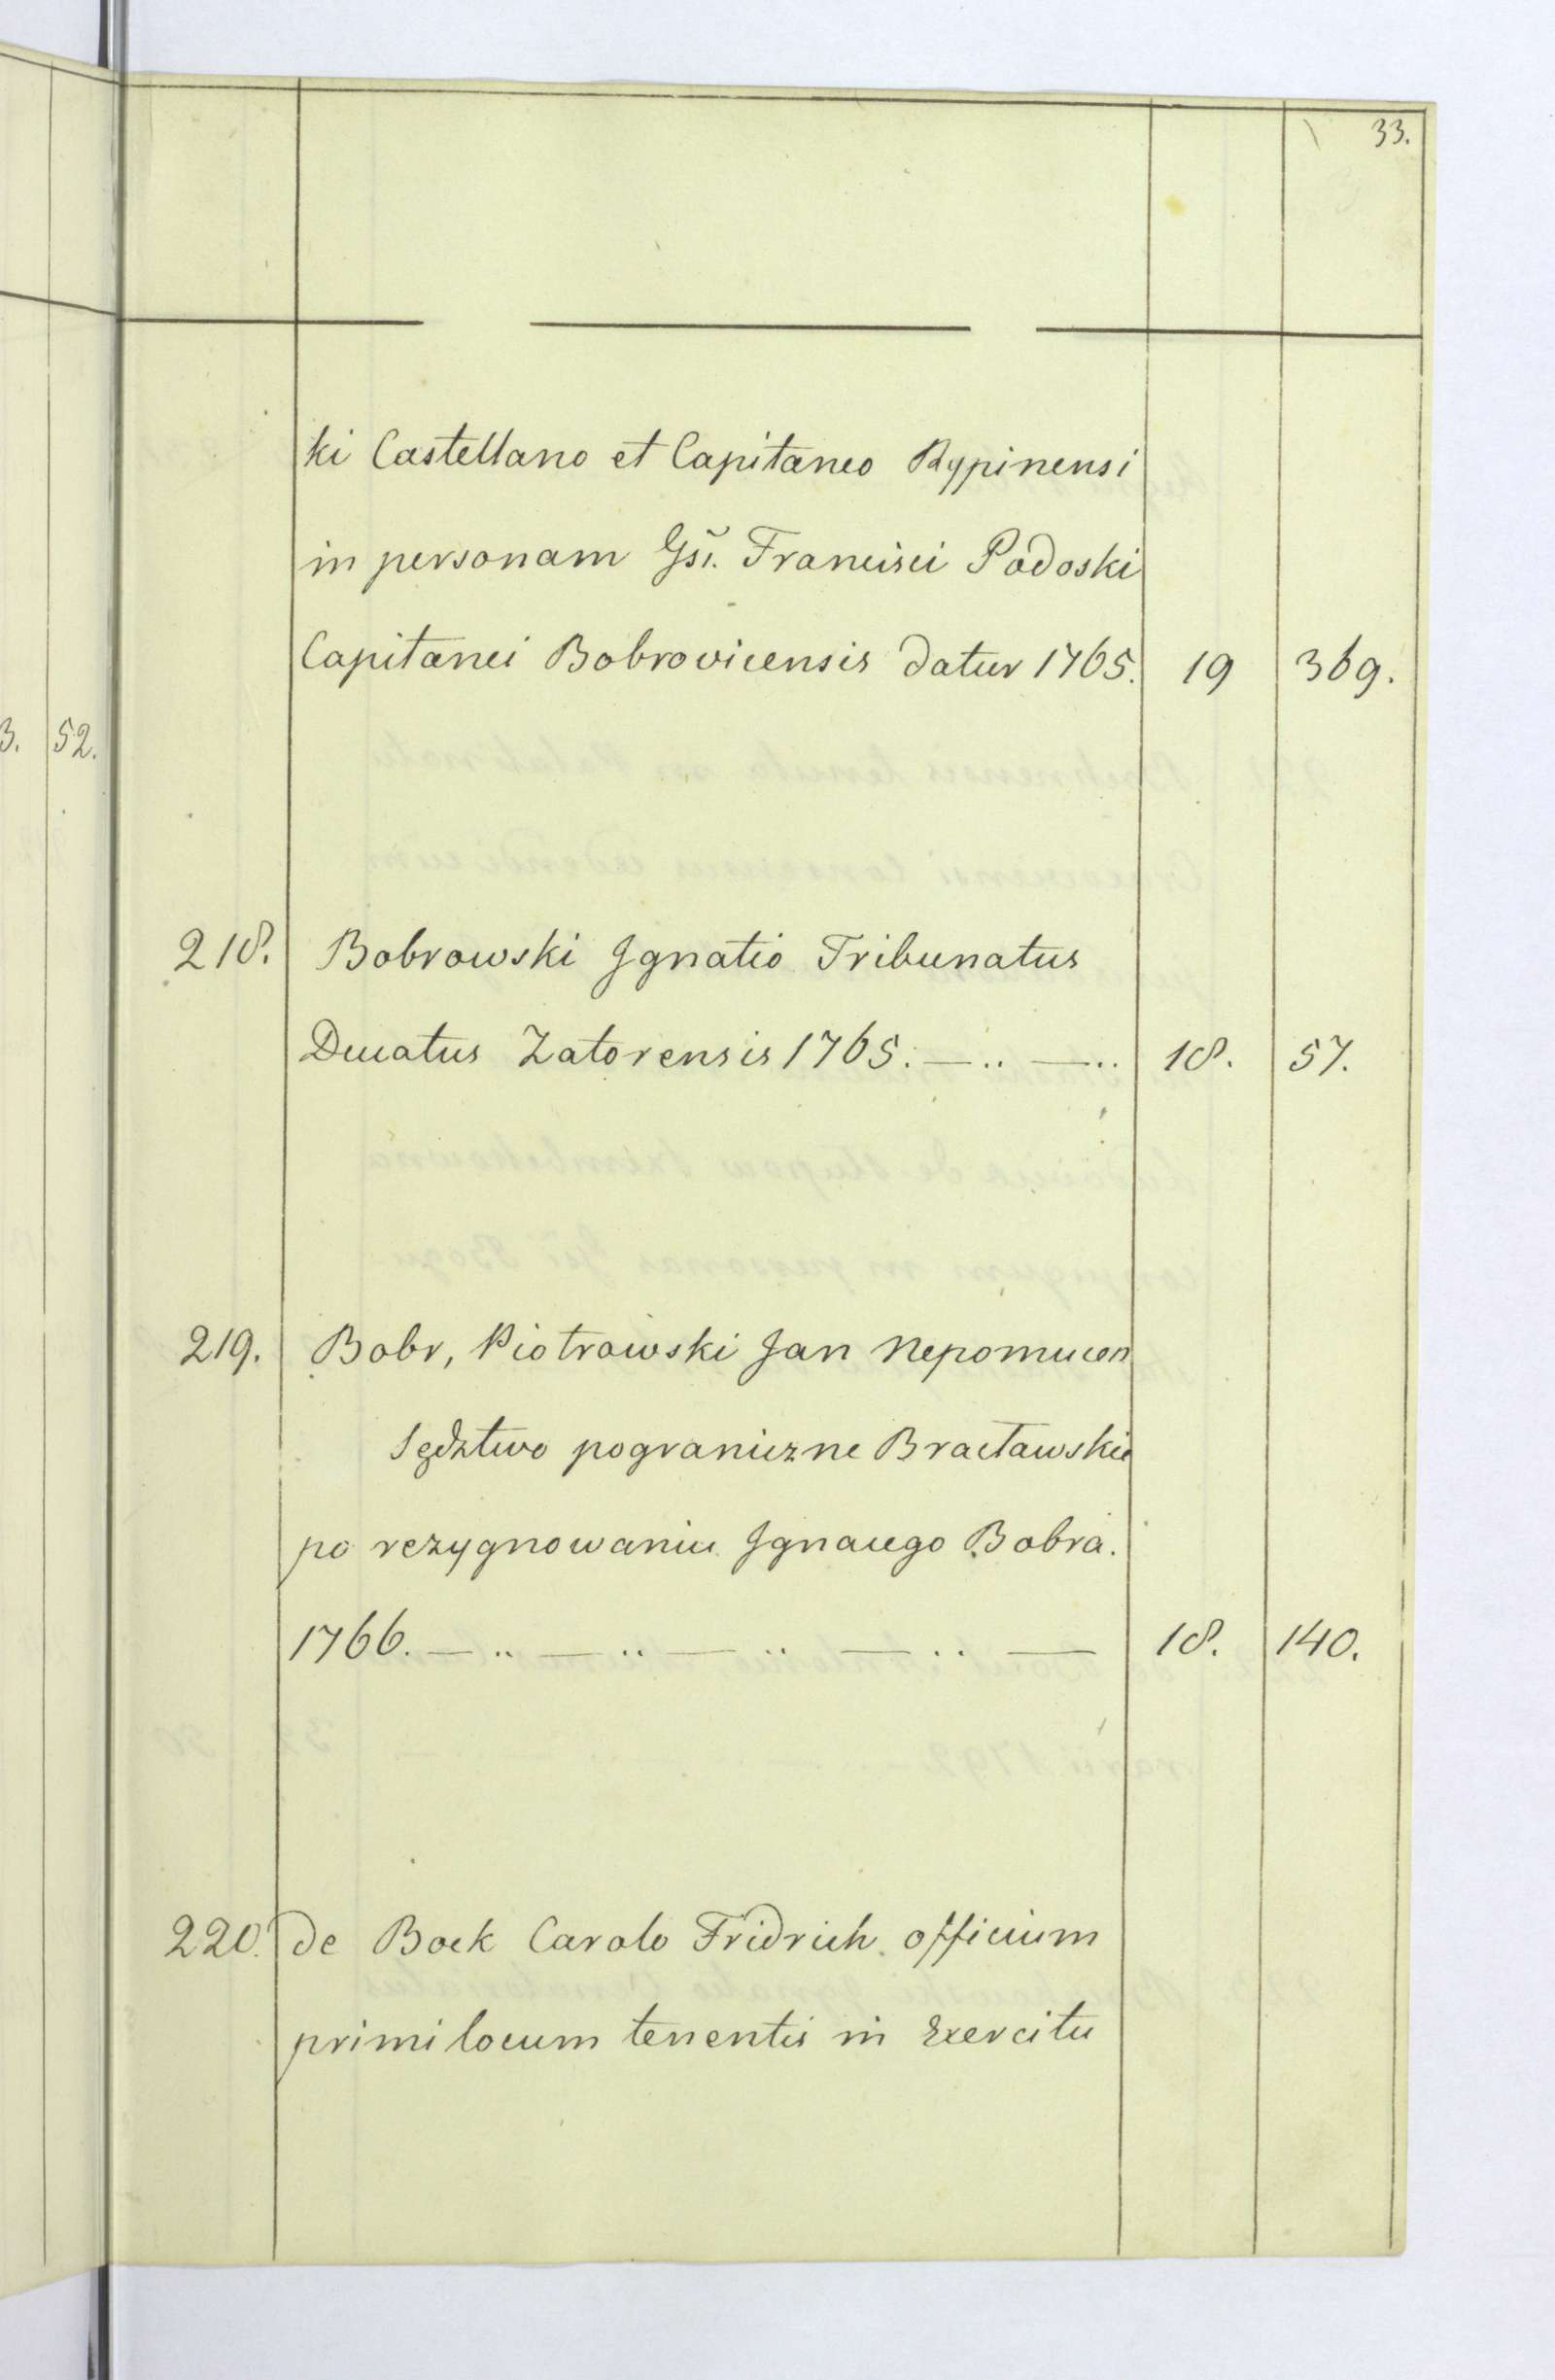 33.
ki Castellano et Capitaneo Rypinensi
in personam Gsi. Francisci Podoski
Capitanei Bobrovicensis datur 1765. 19 369.
3. 52.
218. Bobrowski Ignatio Tribunatus
Ducatus Zatorensis 1765. — .. — .. 18. 57.
219. Bobr, Piotrowski Jan Nepomucen
Sędztwo pograniczne Bracławskie
po rezygnowaniu Ignacego Bobra.
1766. — .. — .. — .. — .. — 18. 140.
220. de Bock Carolo Fridrich officium
primi locum tenentis in Exercitu